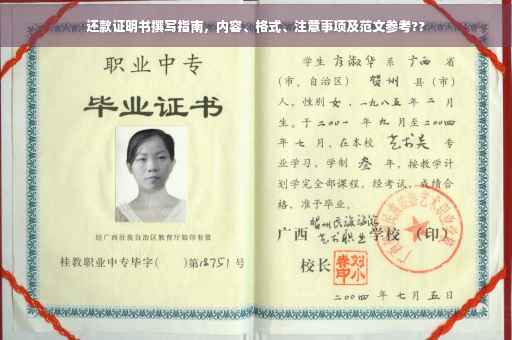 还款证明书撰写指南，内容、格式、注意事项及范文参考??
职业中专
毕业证书
经广西壮族自治区教育厅验印有效
桂教职业中专毕字（ ）第18751号
学生 方淑华 系 广西 省
（市、自治区） 贺州 县（市）
人，性别 女，一九八五年 二 月
生。于 二00一 年 九 月至 二00四
年 七 月，在本校 艺书美 专
业学习，学制 叁 年，按教学计
划学完全部课程，经考试，成绩合
格，准予毕业。
广西 贺州民族旅游艺术职业 学校（印）
校长
二00四 年 七 月 五 日